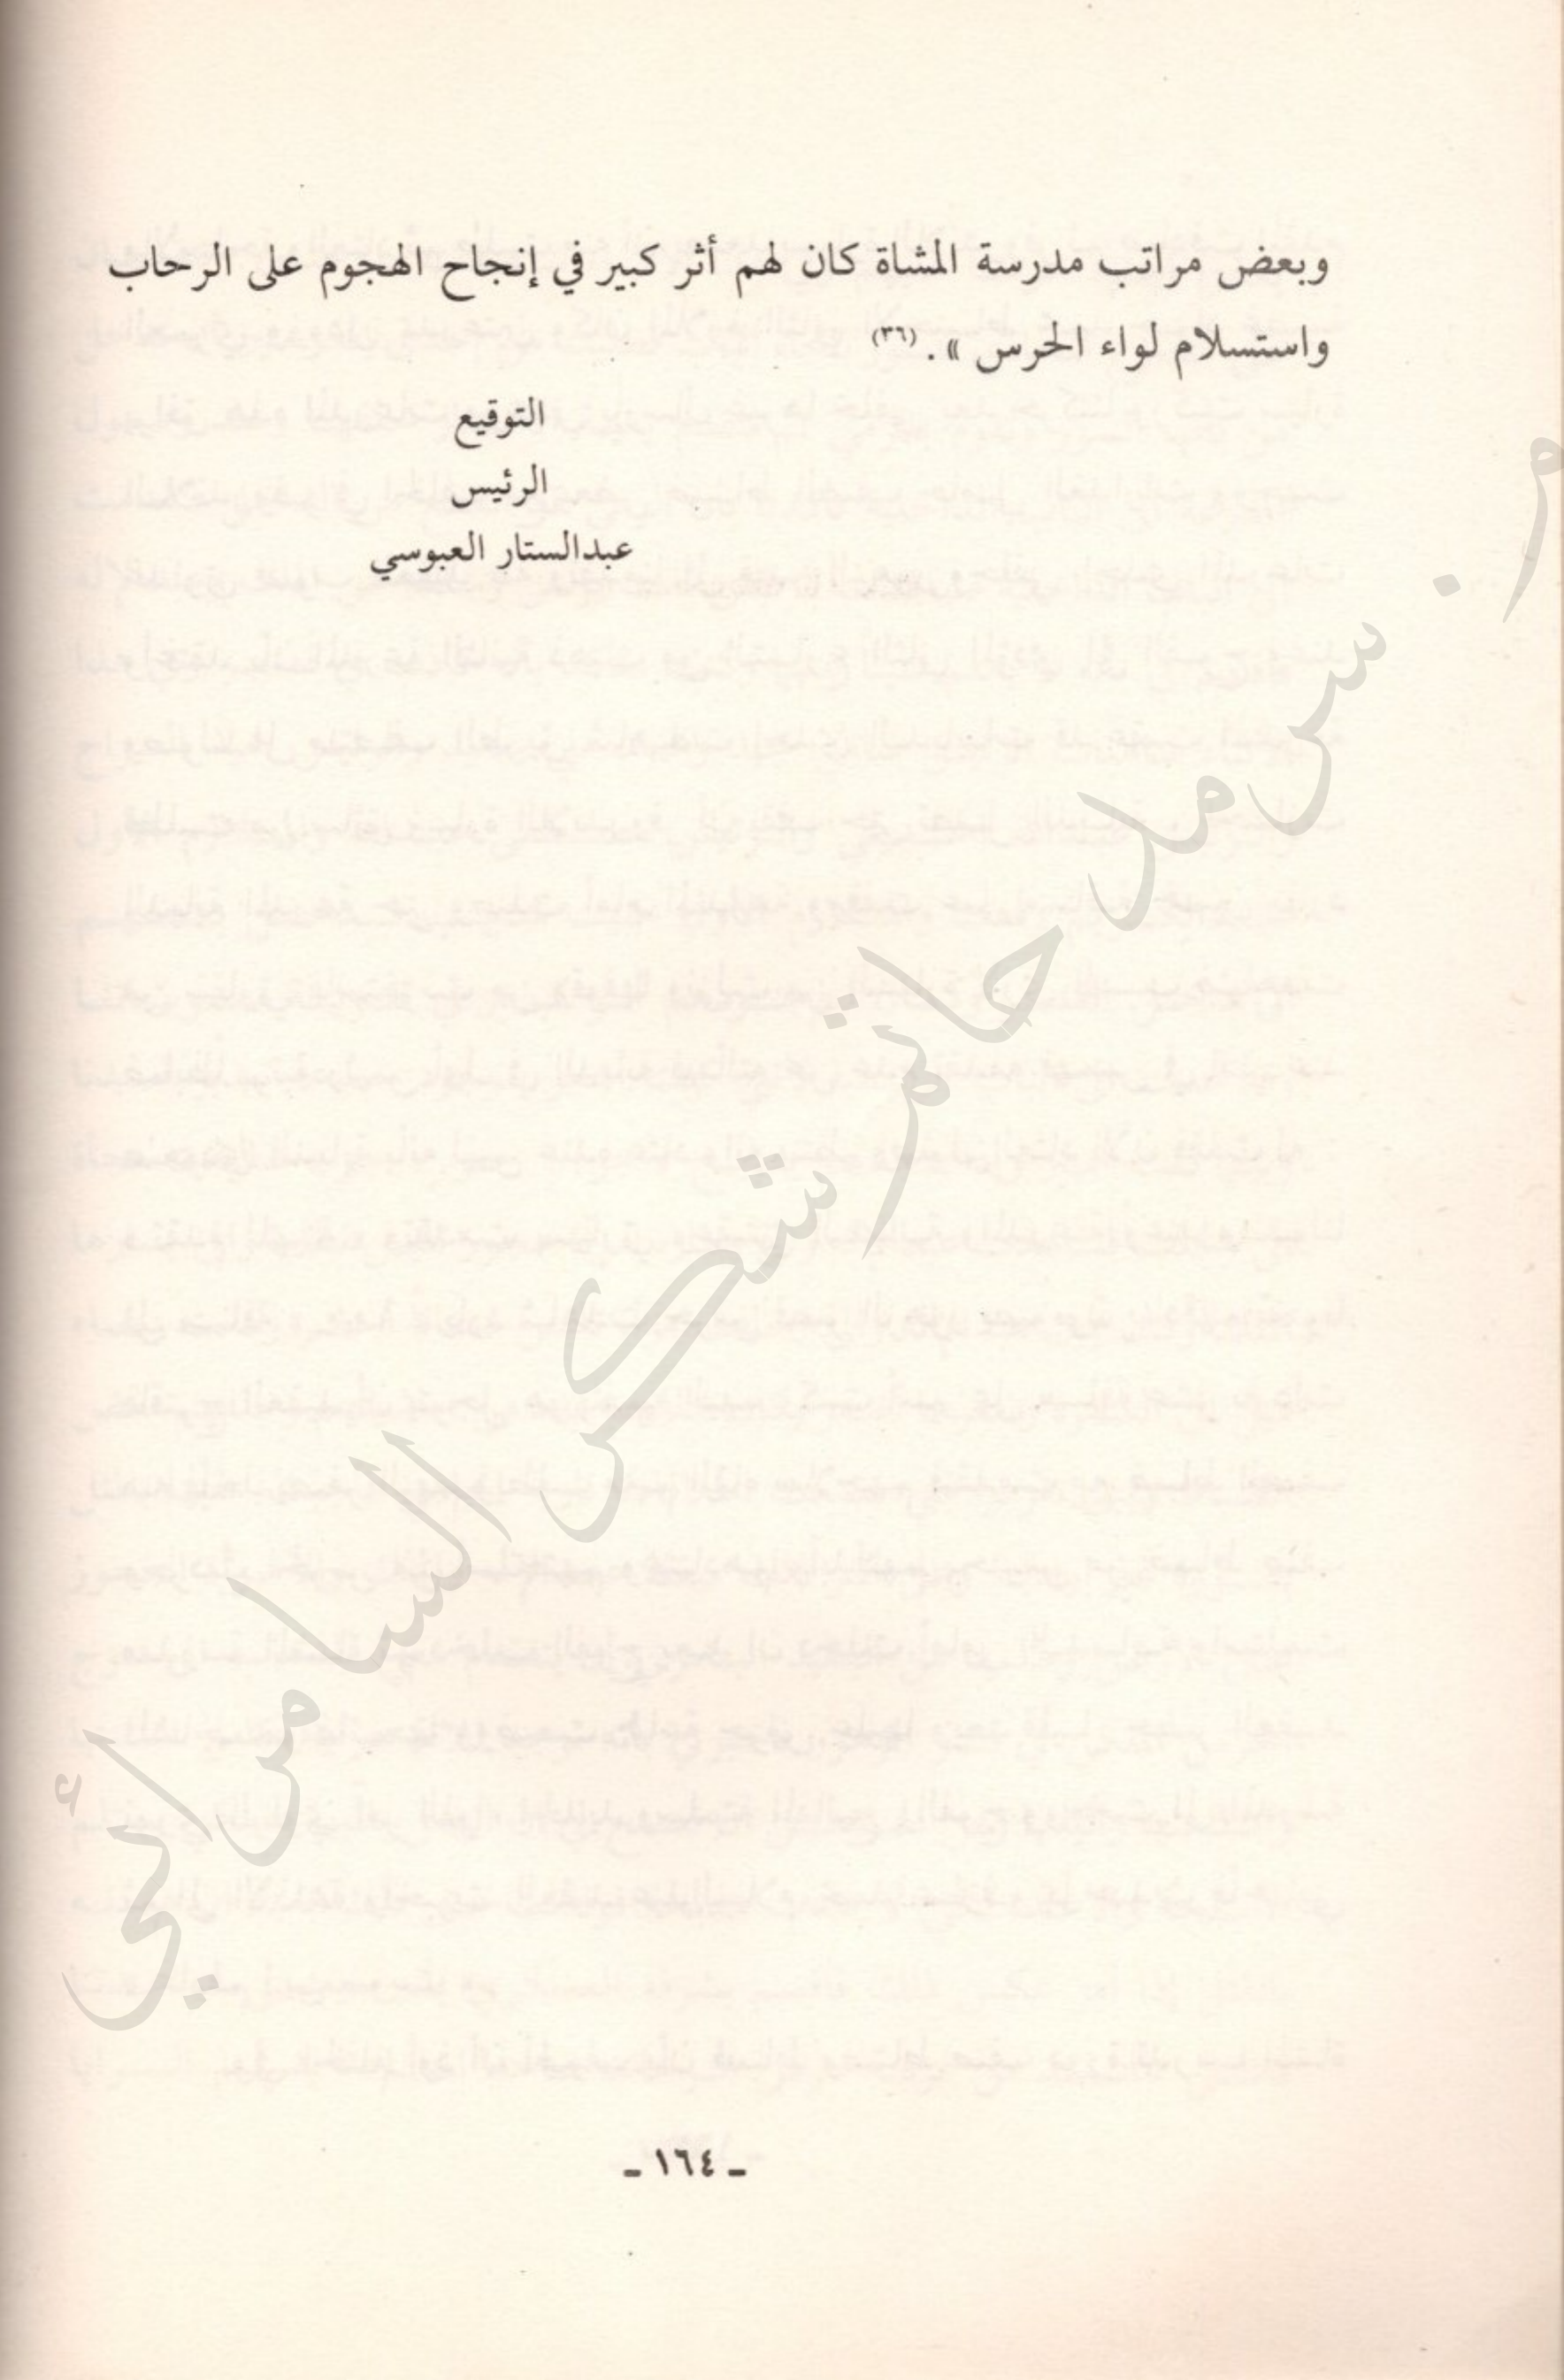 وبعض مراتب مدرسة المشاة كان لهم أثر كبير في إنجاح الهجوم على الرحاب
واستسلام لواء الحرس ». (٣٦)
التوقيع
الرئيس
عبدالستار العبوسي
م. سرمد حاتم شكر السامرائي
ـ ١٦٤ ـ